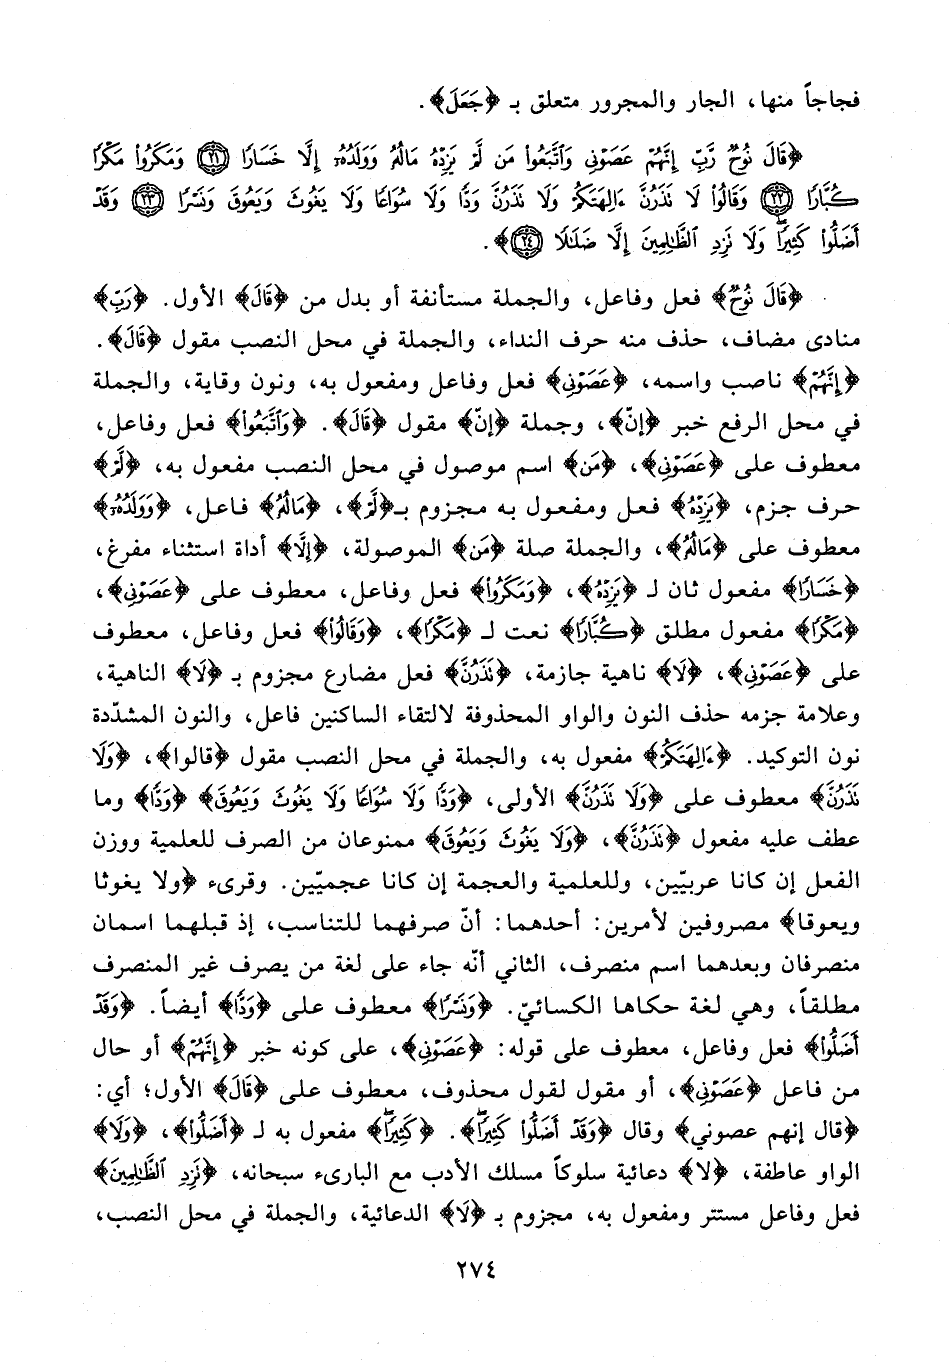 فجاجاً منها، الجار والمجرور متعلق بـ ﴿جَعَلَ﴾.
﴿قَالَ نُوحٌ رَّبِّ إِنَّهُمْ عَصَوْنِي وَٱتَّبَعُوا۟ مَن لَّمْ يَزِدْهُ مَالُهُۥ وَوَلَدُهُۥٓ إِلَّا خَسَارًا ۝٢١ وَمَكَرُوا۟ مَكْرًا
كُبَّارًا ۝٢٢ وَقَالُوا۟ لَا تَذَرُنَّ ءَالِهَتَكُمْ وَلَا تَذَرُنَّ وَدًّا وَلَا سُوَاعًا وَلَا يَغُوثَ وَيَعُوقَ وَنَسْرًا ۝٢٣ وَقَدْ
أَضَلُّوا۟ كَثِيرًا ۖ وَلَا تَزِدِ ٱلظَّٰلِمِينَ إِلَّا ضَلَٰلًا ۝٢٤﴾.
﴿قَالَ نُوحٌ﴾ فعل وفاعل، والجملة مستأنفة أو بدل من ﴿قَالَ﴾ الأول. ﴿رَّبِّ﴾
منادى مضاف، حذف منه حرف النداء، والجملة في محل النصب مقول ﴿قَالَ﴾.
﴿إِنَّهُمْ﴾ ناصب واسمه، ﴿عَصَوْنِي﴾ فعل وفاعل ومفعول به، ونون وقاية، والجملة
في محل الرفع خبر ﴿إنّ﴾، وجملة ﴿إنّ﴾ مقول ﴿قَالَ﴾. ﴿وَٱتَّبَعُوا۟﴾ فعل وفاعل،
معطوف على ﴿عَصَوْنِي﴾، ﴿مَن﴾ اسم موصول في محل النصب مفعول به، ﴿لَّمْ﴾
حرف جزم، ﴿يَزِدْهُ﴾ فعل ومفعول به مجزوم بـ﴿لَّمْ﴾، ﴿مَالُهُۥ﴾ فاعل، ﴿وَوَلَدُهُۥٓ﴾
معطوف على ﴿مَالُهُۥ﴾، والجملة صلة ﴿مَن﴾ الموصولة، ﴿إِلَّا﴾ أداة استثناء مفرغ،
﴿خَسَارًا﴾ مفعول ثان لـ ﴿يَزِدْهُ﴾، ﴿وَمَكَرُوا۟﴾ فعل وفاعل، معطوف على ﴿عَصَوْنِي﴾،
﴿مَكْرًا﴾ مفعول مطلق ﴿كُبَّارًا﴾ نعت لـ ﴿مَكْرًا﴾، ﴿وَقَالُوا۟﴾ فعل وفاعل، معطوف
على ﴿عَصَوْنِي﴾، ﴿لَا﴾ ناهية جازمة، ﴿تَذَرُنَّ﴾ فعل مضارع مجزوم بـ ﴿لَا﴾ الناهية،
وعلامة جزمه حذف النون والواو المحذوفة لالتقاء الساكنين فاعل، والنون المشدّدة
نون التوكيد. ﴿ءَالِهَتَكُمْ﴾ مفعول به، والجملة في محل النصب مقول ﴿قالوا﴾، ﴿وَلَا
تَذَرُنَّ﴾ معطوف على ﴿وَلَا تَذَرُنَّ﴾ الأولى، ﴿وَدًّا وَلَا سُوَاعًا وَلَا يَغُوثَ وَيَعُوقَ﴾ ﴿وَدًّا﴾ وما
عطف عليه مفعول ﴿تَذَرُنَّ﴾، ﴿وَلَا يَغُوثَ وَيَعُوقَ﴾ ممنوعان من الصرف للعلمية ووزن
الفعل إن كانا عربيّين، وللعلمية والعجمة إن كانا عجميّين. وقرىء ﴿ولا يغوثا
ويعوقا﴾ مصروفين لأمرين: أحدهما: أنّ صرفهما للتناسب، إذ قبلهما اسمان
منصرفان وبعدهما اسم منصرف، الثاني أنّه جاء على لغة من يصرف غير المنصرف
مطلقاً، وهي لغة حكاها الكسائيّ. ﴿وَنَسْرًا﴾ معطوف على ﴿وَدًّا﴾ أيضاً. ﴿وَقَدْ
أَضَلُّوا۟﴾ فعل وفاعل، معطوف على قوله: ﴿عَصَوْنِي﴾، على كونه خبر ﴿إِنَّهُمْ﴾ أو حال
من فاعل ﴿عَصَوْنِي﴾، أو مقول لقول محذوف، معطوف على ﴿قَالَ﴾ الأول؛ أي:
﴿قال إنهم عصوني﴾ وقال ﴿وَقَدْ أَضَلُّوا۟ كَثِيرًا ۖ﴾. ﴿كَثِيرًا ۖ﴾ مفعول به لـ ﴿أَضَلُّوا۟﴾، ﴿وَلَا﴾
الواو عاطفة، ﴿لا﴾ دعائية سلوكاً مسلك الأدب مع البارىء سبحانه، ﴿تَزِدِ ٱلظَّٰلِمِينَ﴾
فعل وفاعل مستتر ومفعول به، مجزوم بـ ﴿لَا﴾ الدعائية، والجملة في محل النصب،
٢٧٤